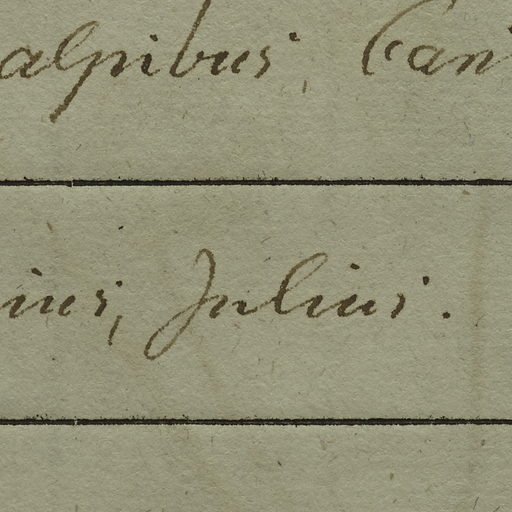 alpibus, Can
ius, Julius.